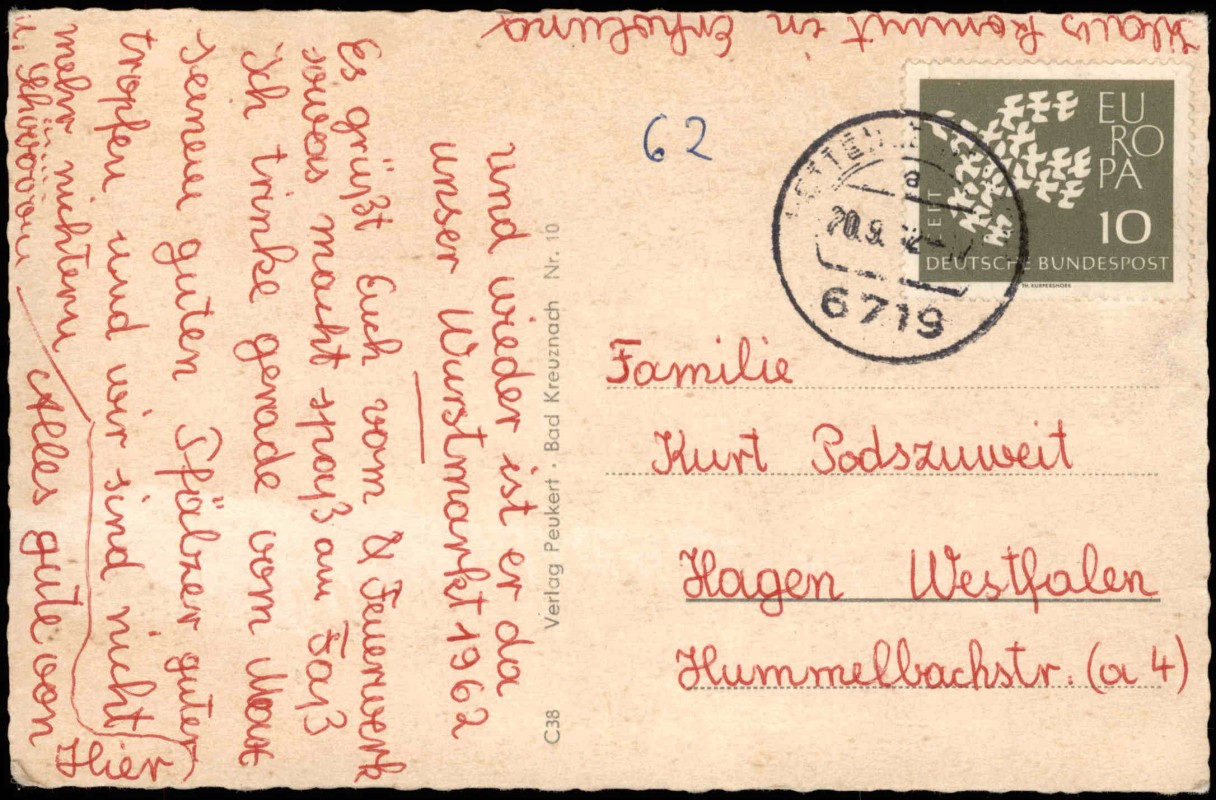 und wieder ist er da
unser Wurstmarkt 1962
Es grüßt Euch vom & Feuerwerk
sowas macht spaß am Faß
Ich trinke gerade vom
guten Pfälzer guter
tropfen und wir sind nicht
mehr nüchtern
Alles gute von
Hier
Klaus kommt in Erholung
62
EUROPA
CEPT
10
DEUTSCHE BUNDESPOST
a
20.9.
6719
Familie
Kurt Podszuweit
Hagen Westfalen
Hummelbachstr. (a 4)
C38 Verlag Peukert · Bad Kreuznach Nr. 10